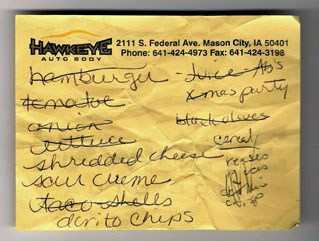 HAWKEYE
AUTO BODY
2111 S. Federal Ave. Mason City, IA 50401
Phone: 641-424-4973 Fax: 641-424-3198
hamburger
tomatoe
onion
lettuce
shredded cheese
sour creme
taco shells
dorito chips
Juice
Xmas party
black olives
cereal
reeses